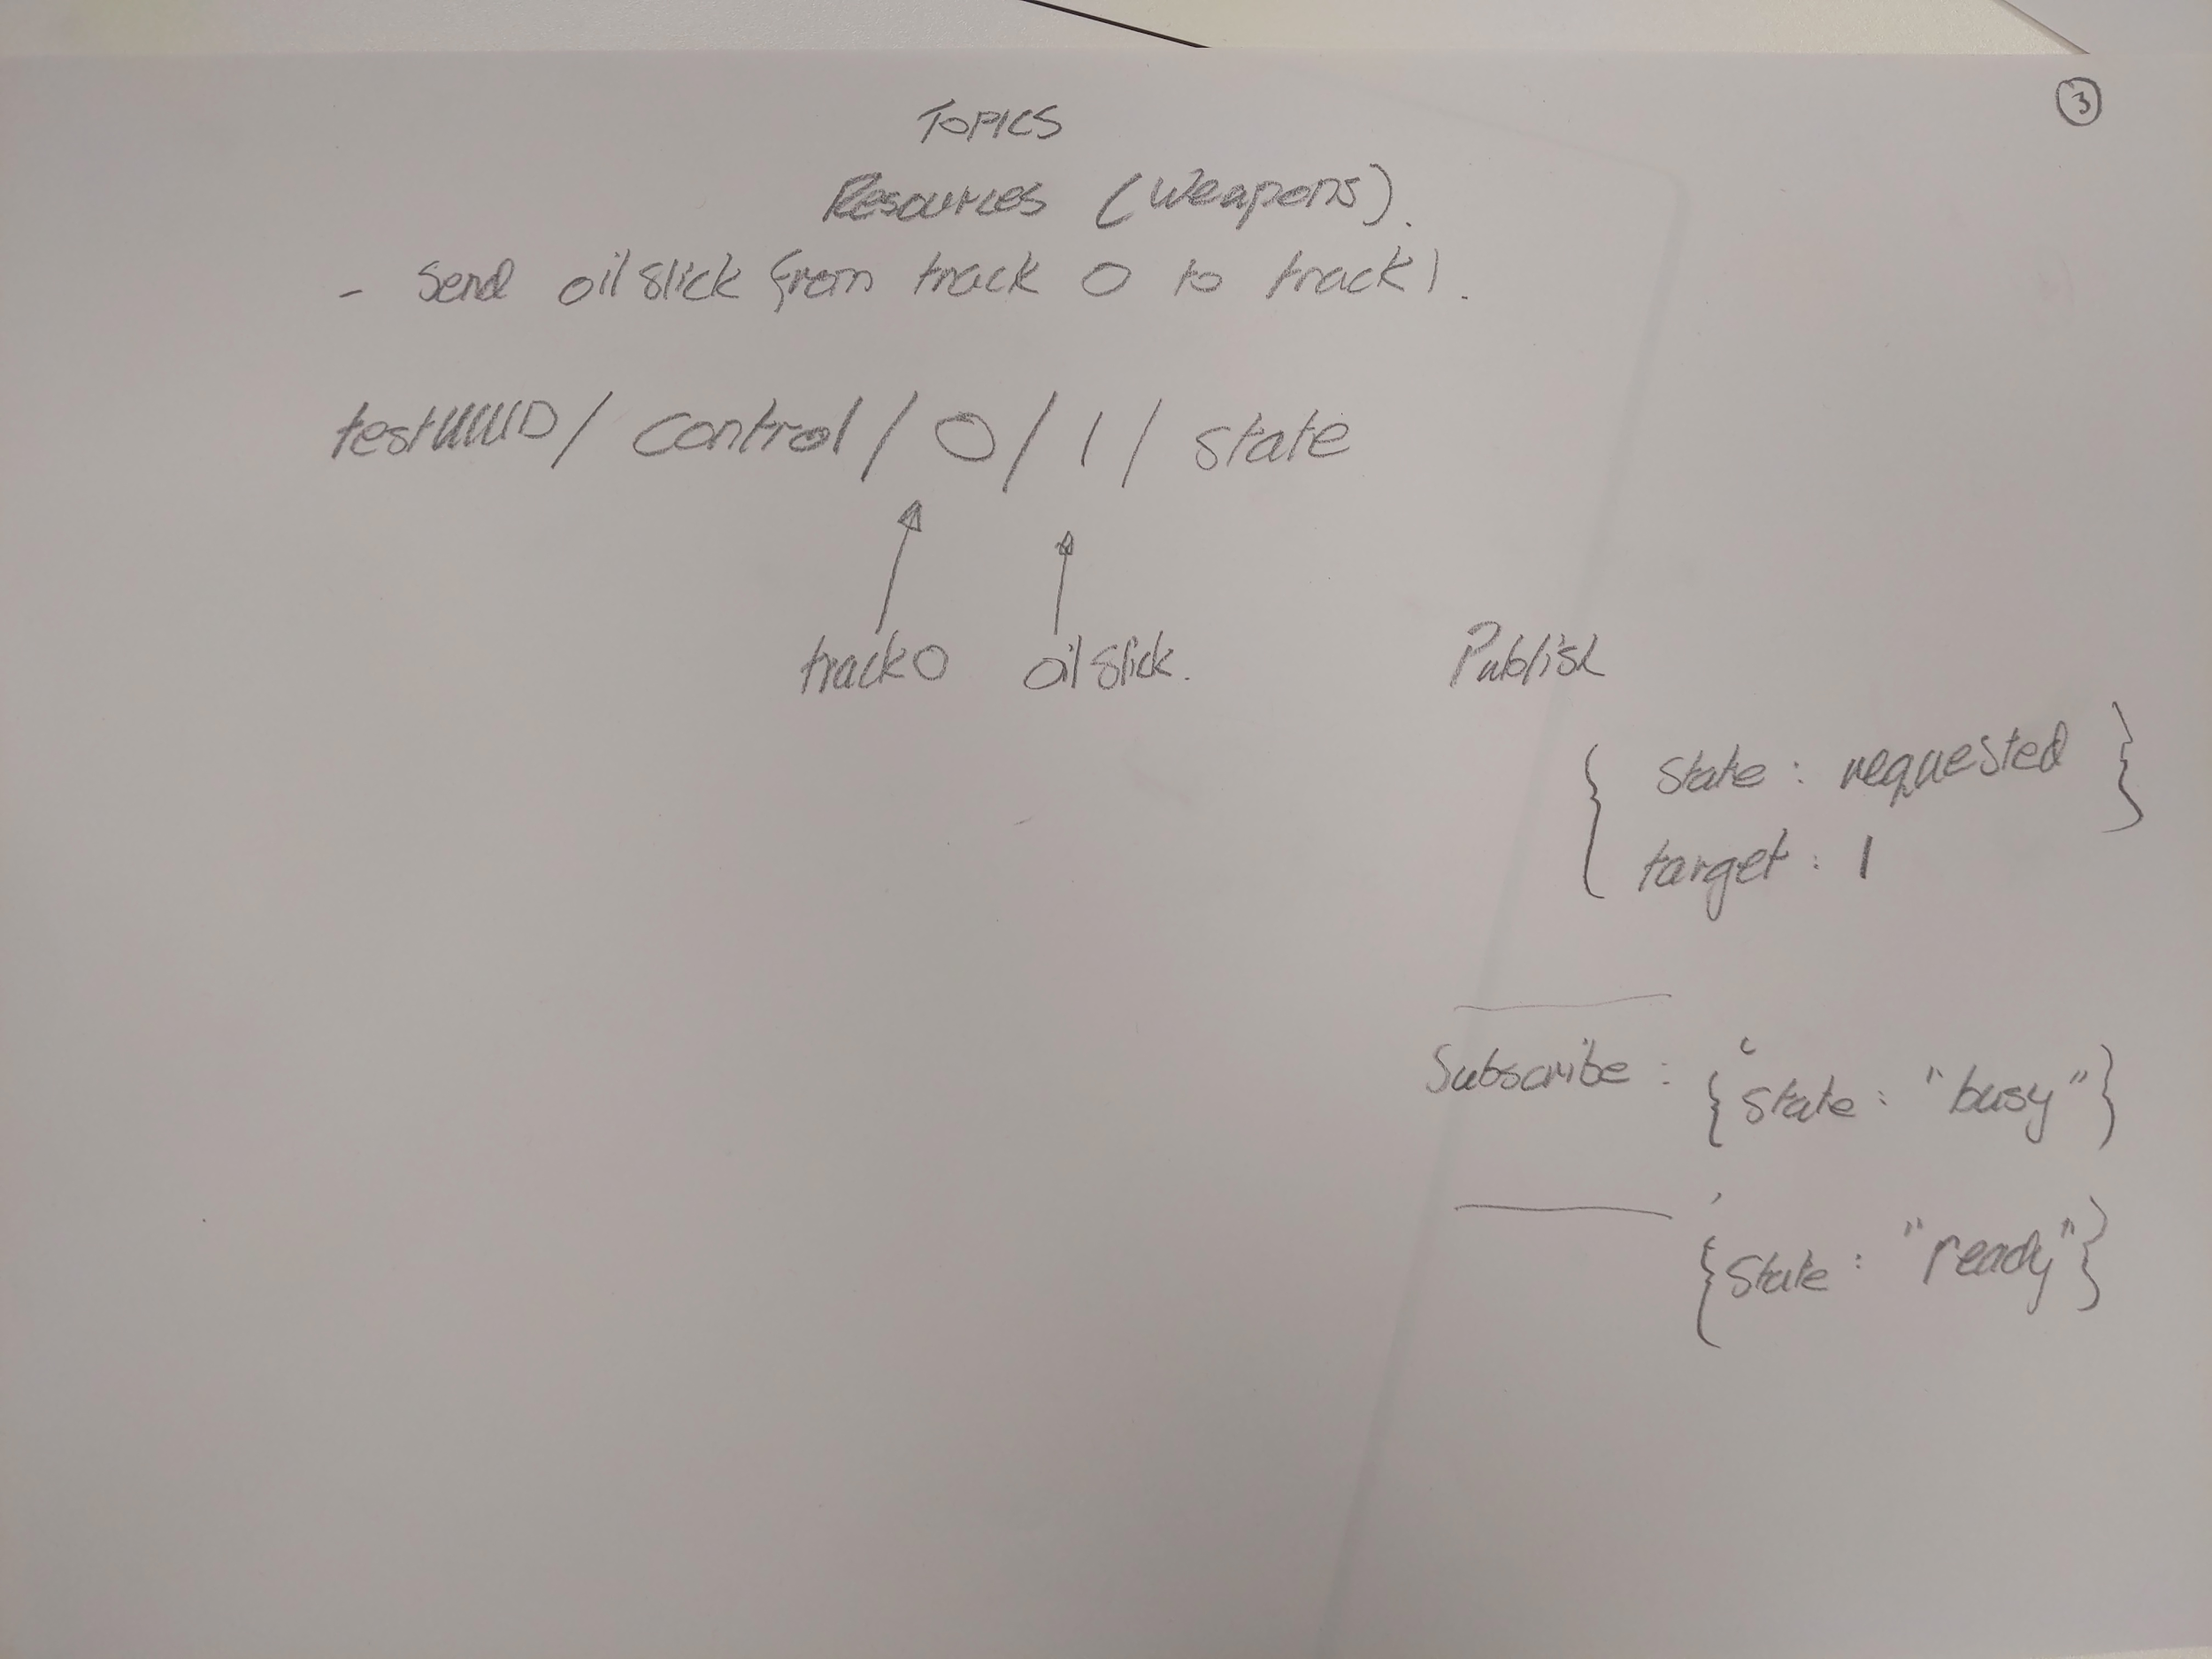 3
Topics
Resources (Weapons).
- Send oil slick from track 0 to track 1.
testUUID / control / 0 / 1 / state
track 0 oil slick.
Publish
{ state : requested }
target : 1
Subscribe : { state : "busy" }
{ state : "ready" }